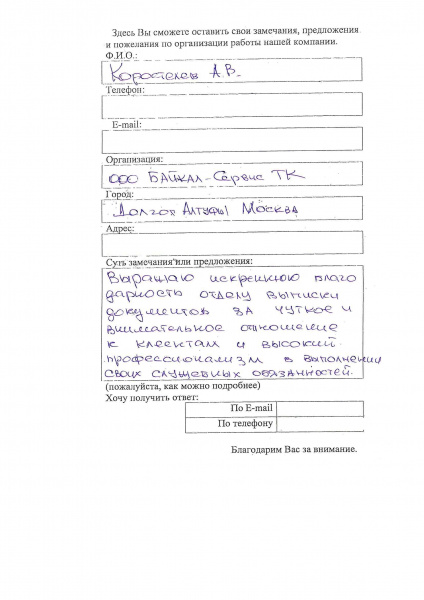 Здесь Вы сможете оставить свои замечания, предложения
и пожелания по организации работы нашей компании.
Ф.И.О.:
Коротелев А.В.
Телефон:
E-mail:
Организация:
ООО БАЙКАЛ-Сервис ТК
Город:
Долгое Алтуфье Москва
Адрес:
Суть замечания или предложения:
Выражаю искреннюю благо
дарность отделу выписки
документов за чуткое и
внимательное отношение
к клиентам и высокий
профессионализм в выполнении
своих служебных обязанностей.
(пожалуйста, как можно подробнее)
Хочу получить ответ:
По E-mail
По телефону
Благодарим Вас за внимание.